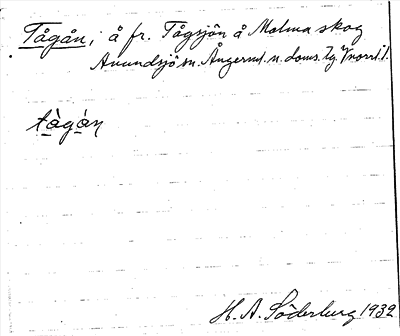 Tågån, å fr. Tågsjön å Malma skog
Anundsjö sn. Ångerml. n. doms. lg. Ynorrl.l.
tågån
H. A. Söderberg 1932